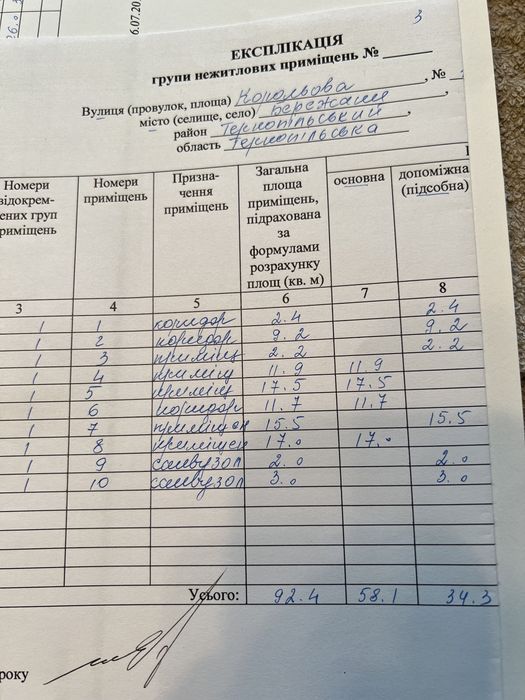 26.0
6.07.20
3
ЕКСПЛІКАЦІЯ
групи нежитлових приміщень №
Вулиця (провулок, площа) Корольова, №
місто (селище, село) Бережани,
район Тернопільський,
область Тернопільська
Номери відокрем-
ених груп
риміщень
Номери
приміщень
Призна-
чення
приміщень
Загальна
площа
приміщень,
підрахована
за
формулами
розрахунку
площ (кв. м)
основна
допоміжна
(підсобна)
3 4 5 6 7 8
1 1 коридор 2.4 2.4
1 2 коридор 9.2 9.2
1 3 приміщ 2.2 2.2
1 4 приміщ 11.9 11.9
1 5 приміщ 17.5 17.5
1 6 коридор 11.7 11.7
1 7 приміщен 15.5 15.5
1 8 приміщен 17.0 17.0
1 9 санвузол 2.0 2.0
1 10 санвузол 3.0 3.0
Усього: 92.4 58.1 34.3
року